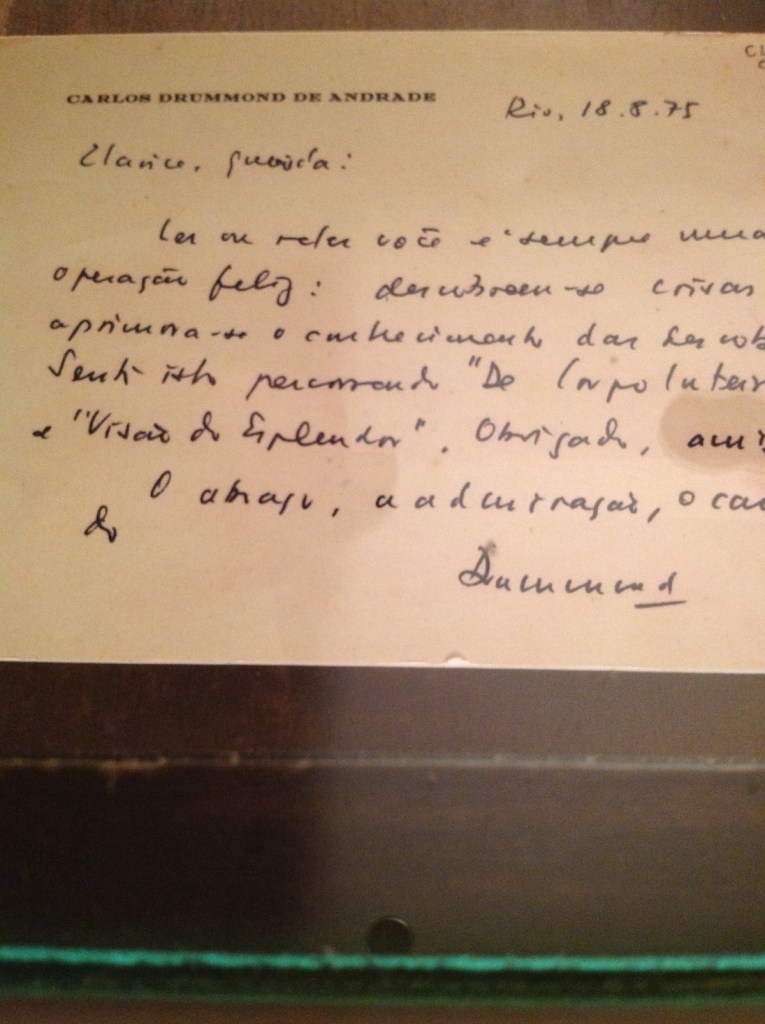 CL
CARLOS DRUMMOND DE ANDRADE
Rio, 18.8.75
Clarice, querida:
Ler ou reler você é sempre uma
operação feliz: descobrem-se coisas
aprimora-se o conhecimento das descob
Senti isto percorrendo "De Corpo Inteir
e "Visão do Esplendor". Obrigado, ami
O abraço, a admiração, o car
do
Drummond